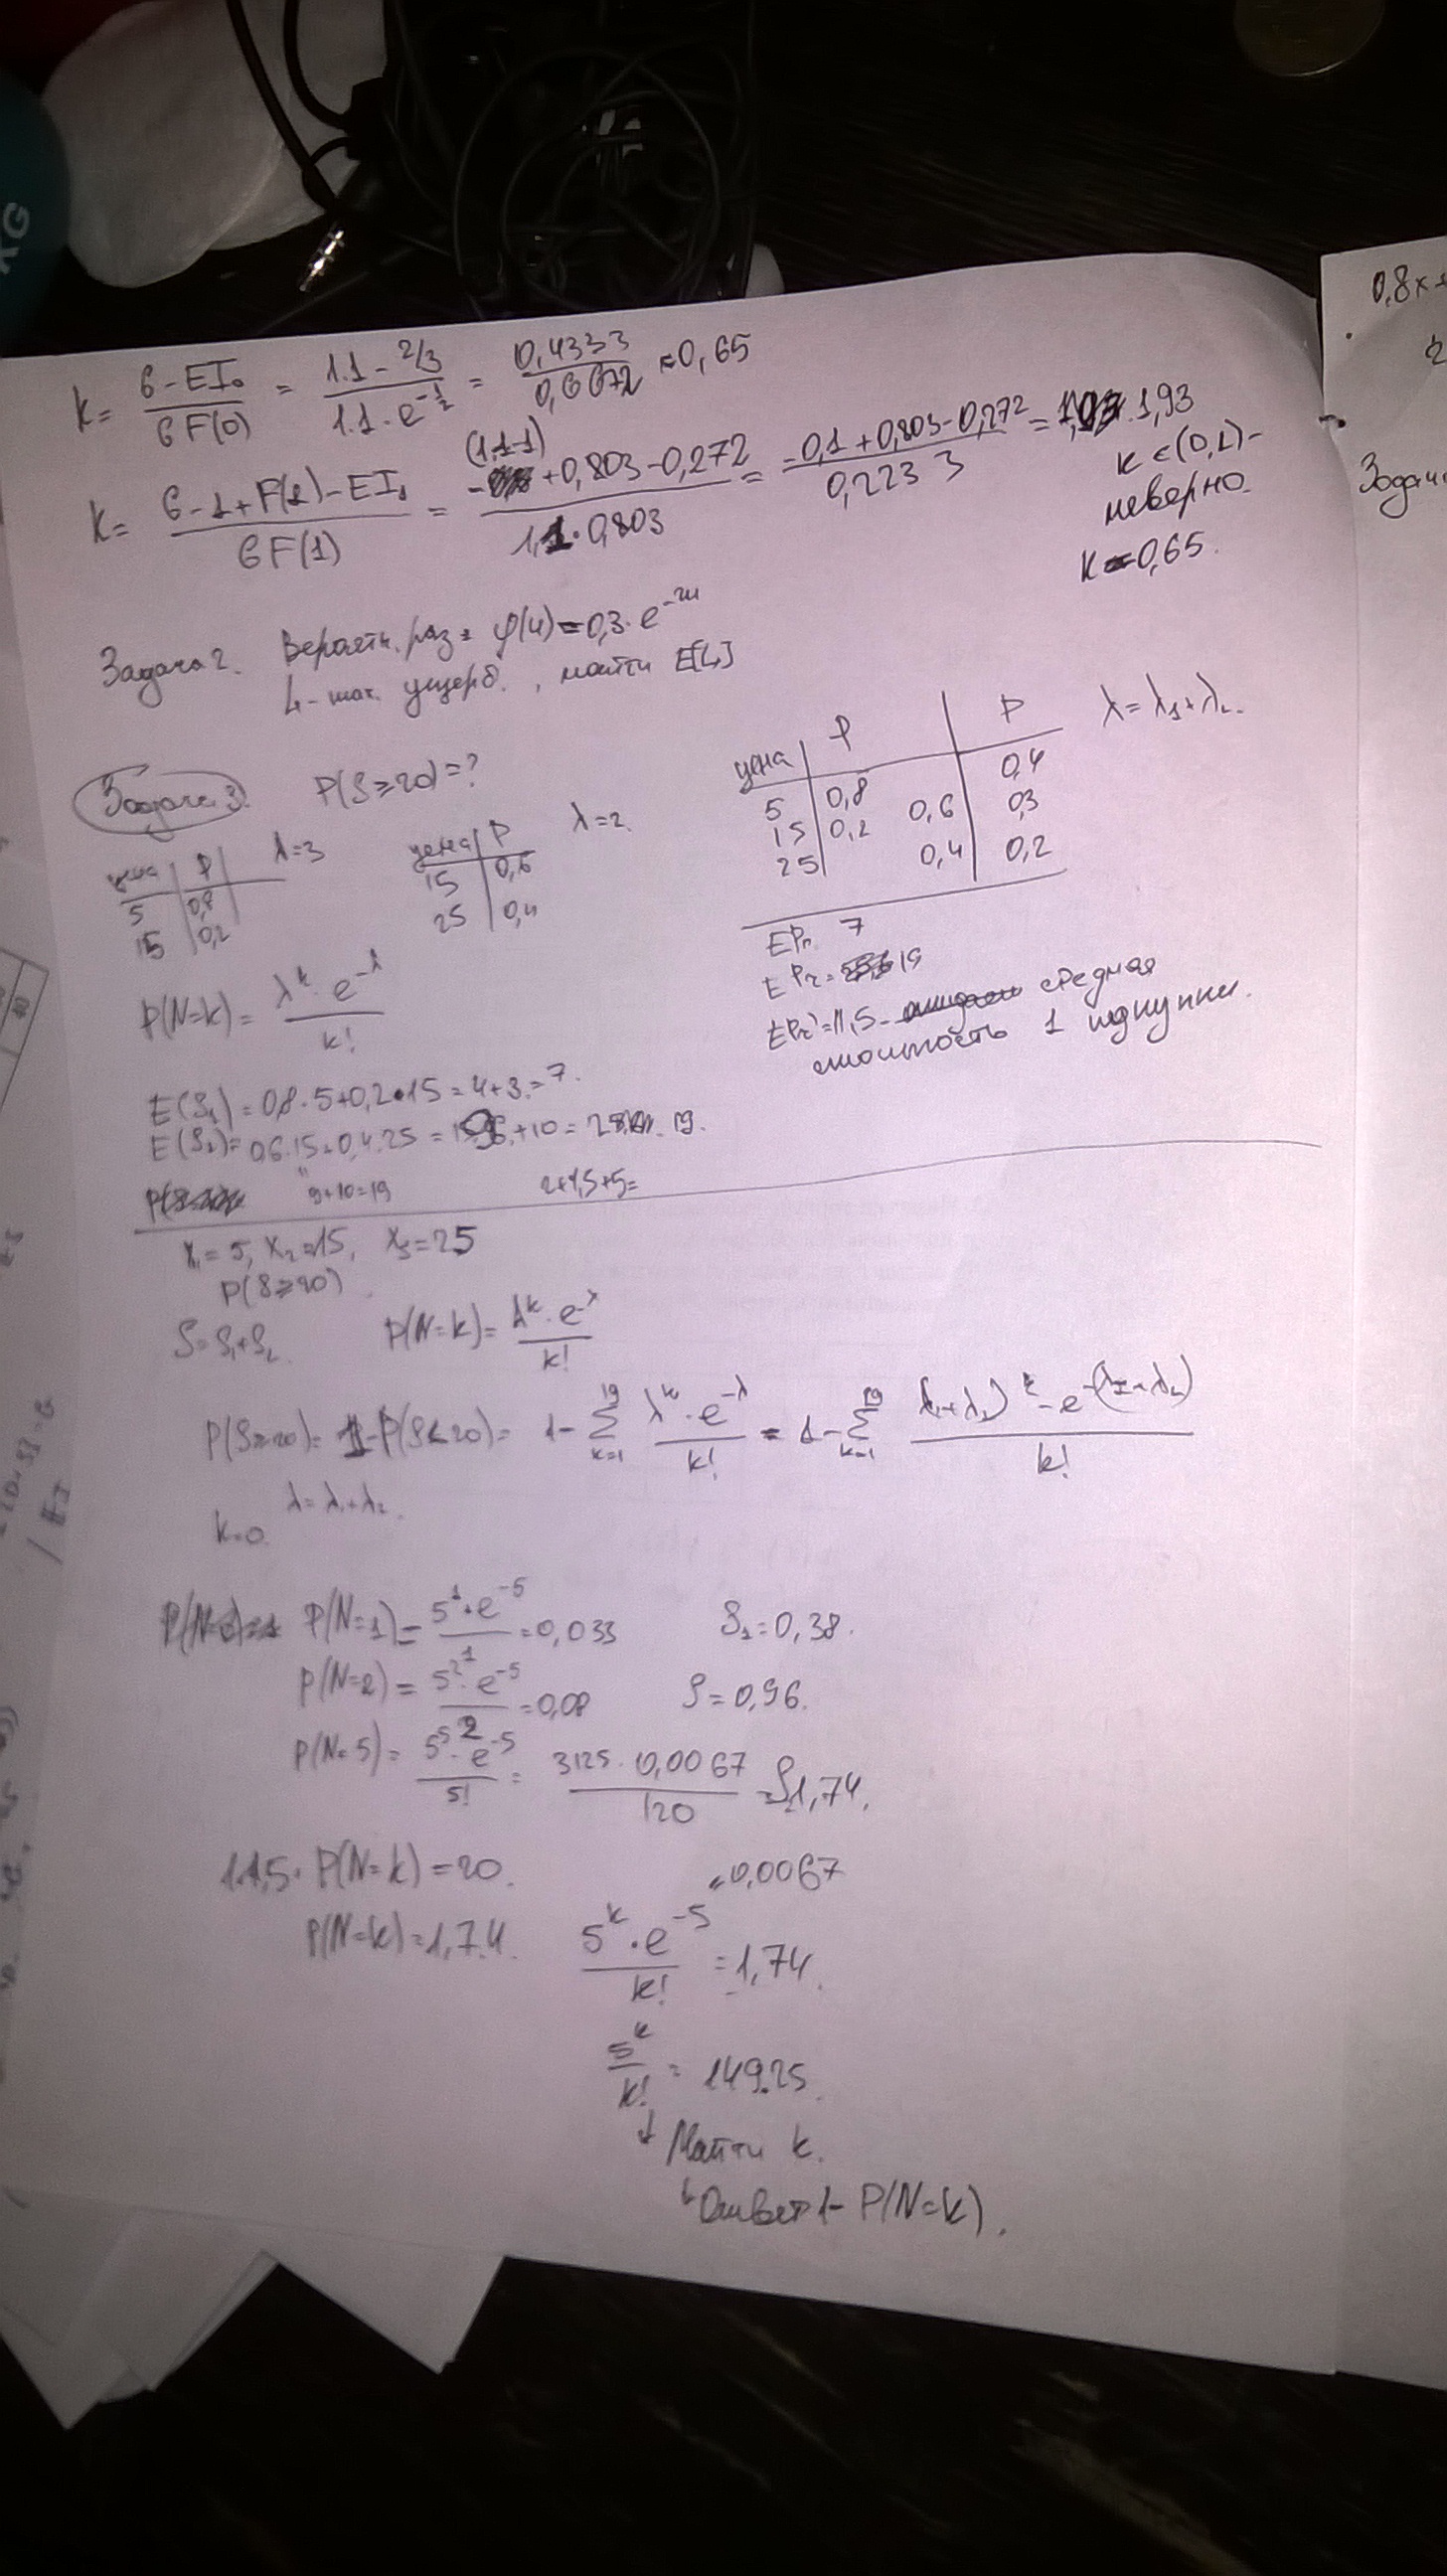 K = (б - EI₀)/(б F(0)) = (1.1 - 2/3)/(1.1 · e^(-1/2)) = 0,4333/0,6672 ≈ 0,65
K = (б - 1 + F(1) - EI₁)/(б F(1)) = ((1,1-1) + 0,803 - 0,272)/(1,1 · 0,803) = (-0,1 + 0,803 - 0,272)/0,2233 = 1,93
K ∈ (0,1) -
неверно
K = 0,65.
Задача 2. Вероятн. раз = φ(u) = 0,3 · e^(-2u)
L - мах. ущерб., найти E[L]
Задача 3. P(S ≥ 20) = ?
цена | P λ=3
5 | 0,8
15 | 0,2
цена | P λ=2.
15 | 0,6
25 | 0,4
цена | P | P λ = λ₁+λ₂.
5 | 0,8 | 0,4
15 | 0,2 0,6 | 0,3
25 | 0,4 | 0,2
EP₁ 7
EP₂ = 19
EP₂ = 11,5 - средная
стоимость 1 покупки.
P(N=k) = λ^k · e^(-λ)/k!
E(S₁) = 0,8 · 5 + 0,2 · 15 = 4 + 3 = 7.
E(S₂) = 0,6 · 15 + 0,4 · 25 = + 10 = 19.
9+10=19 2+4,5+5=
X₁ = 5, X₂ = 15, X₃ = 25
P(S ≥ 20)
S = S₁+S₂ P(N=k) = λ^k · e^(-λ)/k!
P(S ≥ 20) = 1 - P(S < 20) = 1 - Σ_(k=1)^19 λ^k · e^(-λ)/k! = 1 - Σ_(k=1)^19 (λ₁+λ₂)^k · e^(-(λ₁+λ₂))/k!
λ = λ₁+λ₂.
k=0
P(N=1) = 5¹ · e^(-5)/1 = 0,033 S₁ = 0,38.
P(N=2) = 5² · e^(-5)/2 = 0,08 S = 0,96.
P(N=5) = 5⁵ · e^(-5)/5! = 3125 · 0,0067/120 = 1,74.
11,5 · P(N=k) = 20. = 0,0067
P(N=k) = 1,74. 5^k · e^(-5)/k! = 1,74.
5^k/k! = 149.25
↓ Найти k.
↳ Ответ 1 - P(N=k).
0,8x+
Задач